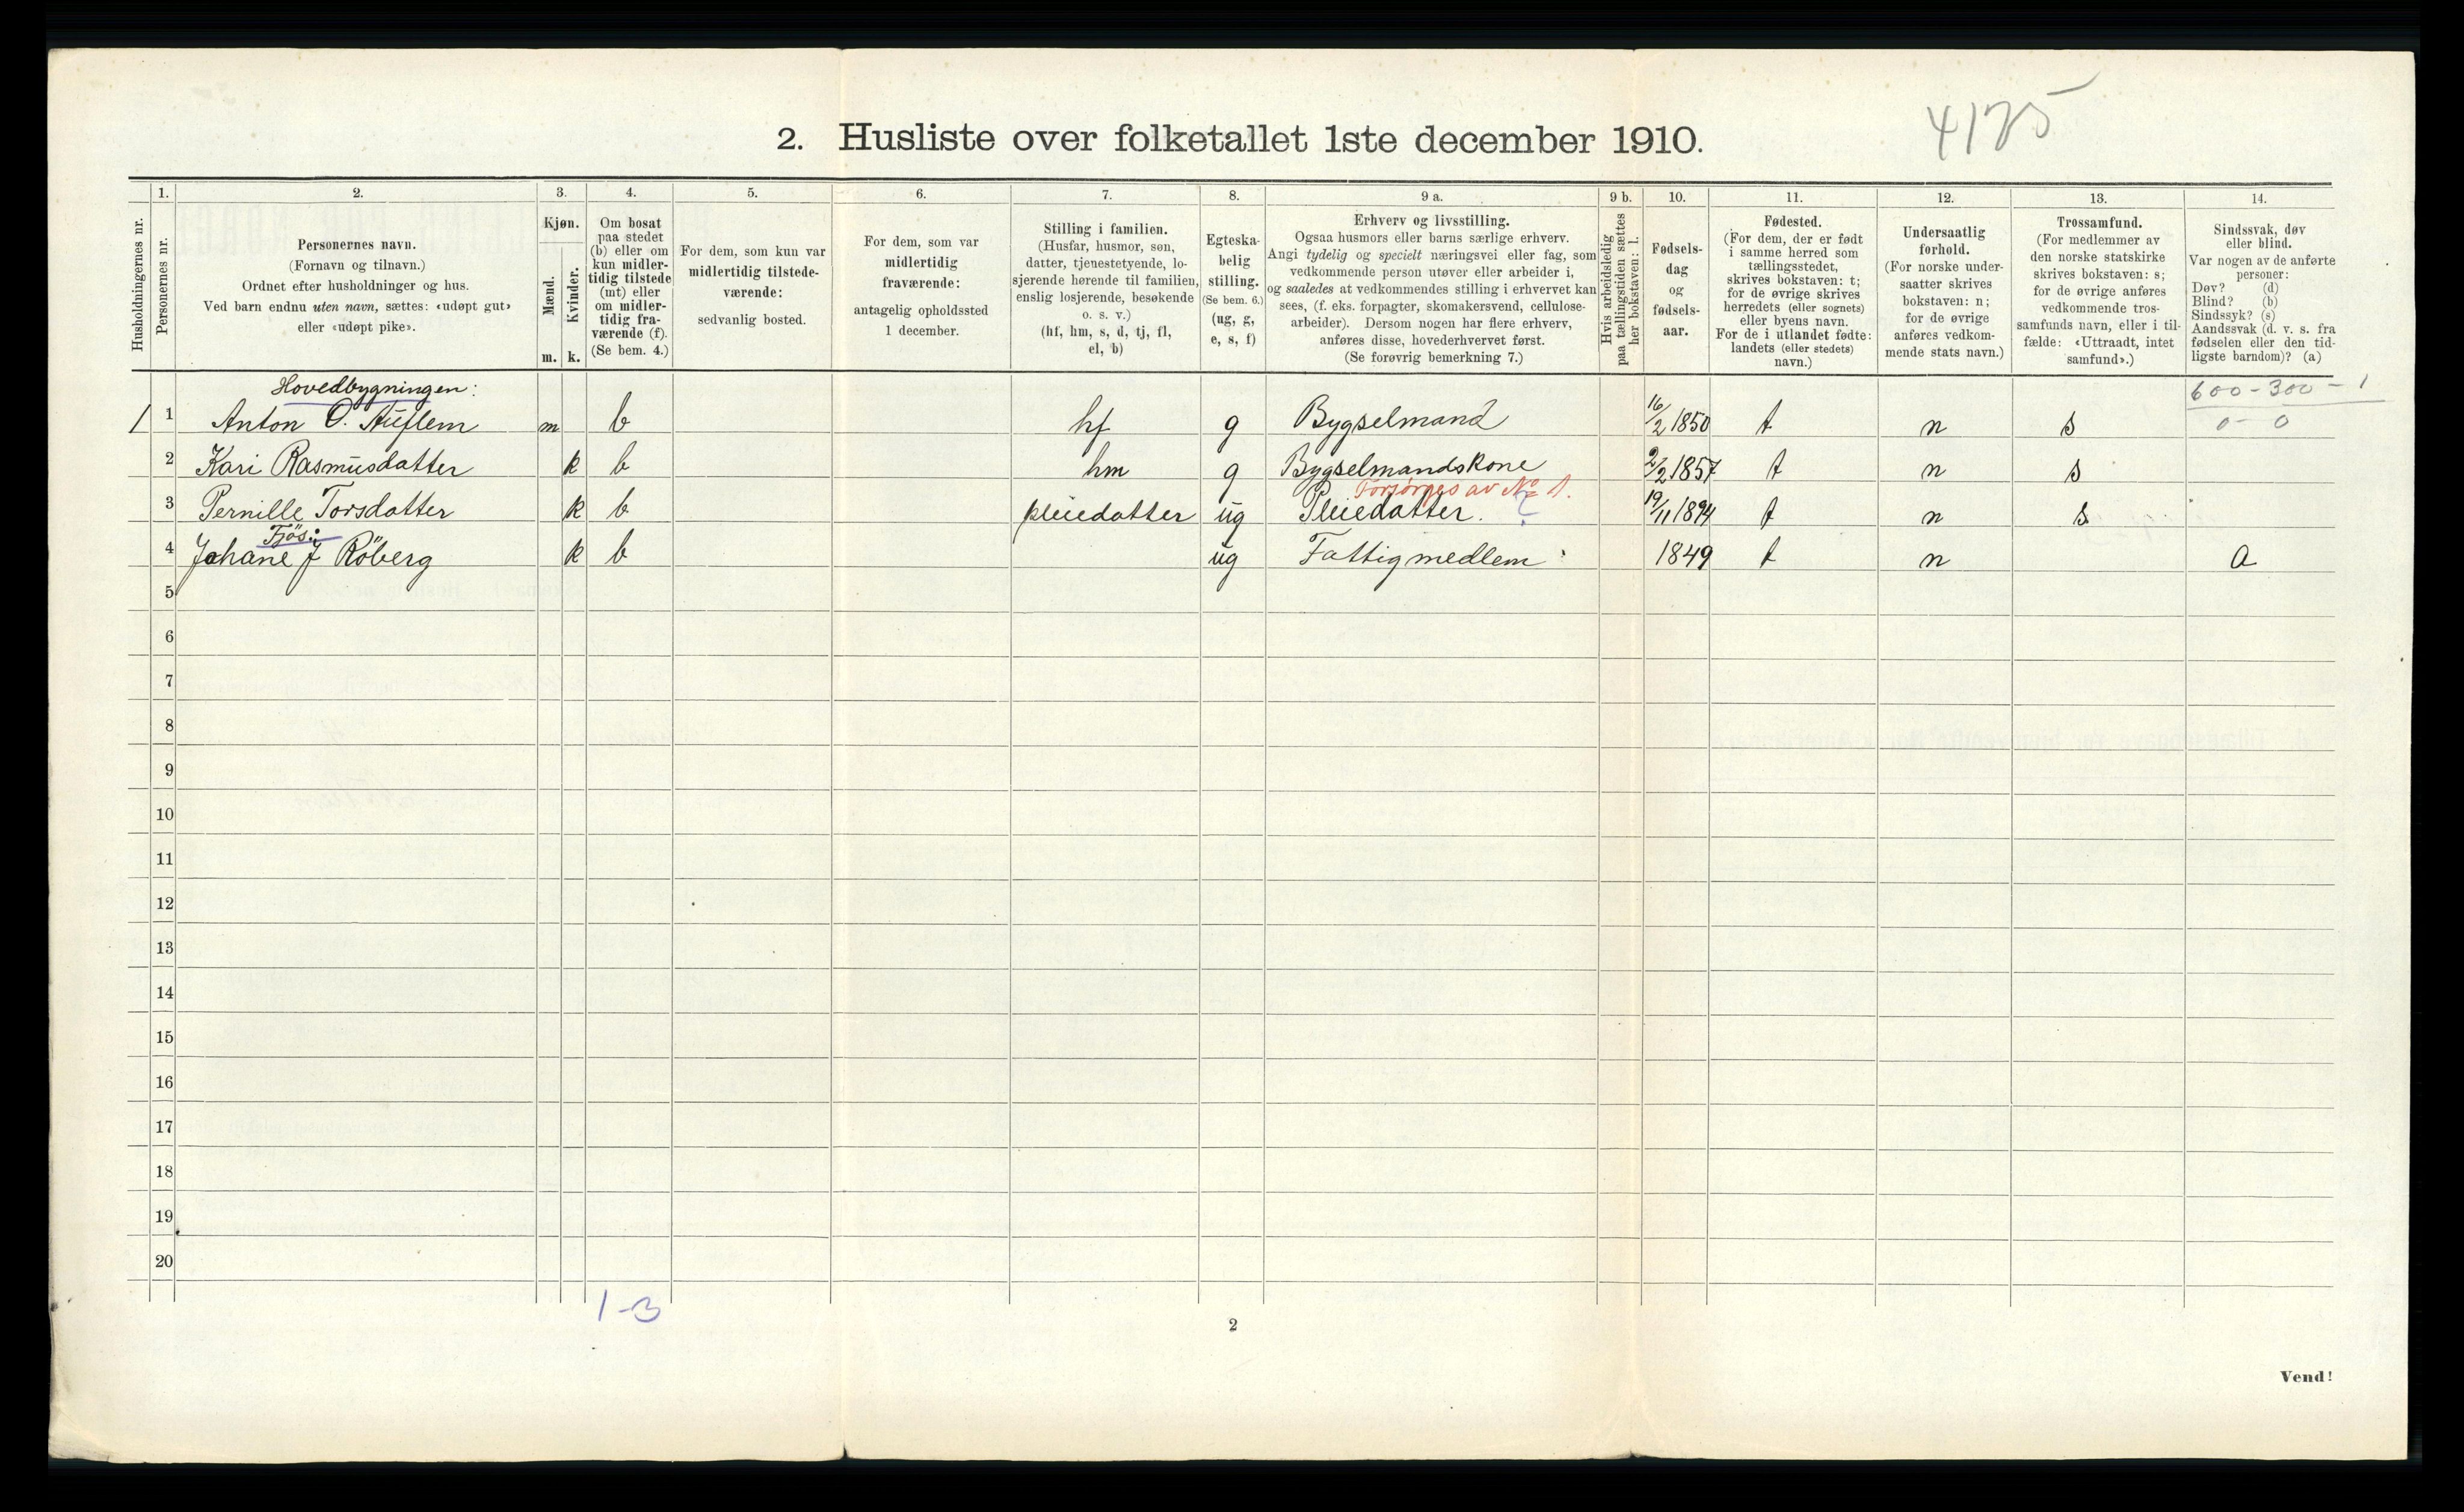 4175
2. Husliste over folketallet 1ste december 1910.
1. 2. 3. 4. 5. 6. 7. 8. 9 a. 9 b. 10. 11. 12. 13. 14.
Husholdningernes nr.
Personernes nr.
Personernes navn.
(Fornavn og tilnavn.)
Ordnet efter husholdninger og hus.
Ved barn endnu uten navn, sættes: «udøpt gut»
eller «udøpt pike».
Kjøn.
Mænd.
Kvinder.
m. k.
Om bosat
paa stedet
(b) eller om
kun midler-
tidig tilstede
(mt) eller
om midler-
tidig fra-
værende (f).
(Se bem. 4.)
For dem, som kun var
midlertidig tilstede-
værende:
sedvanlig bosted.
For dem, som var
midlertidig
fraværende:
antagelig opholdssted
1 december.
Stilling i familien.
(Husfar, husmor, søn,
datter, tjenestetyende, lo-
sjerende hørende til familien,
enslig losjerende, besøkende
o. s. v.)
(hf, hm, s, d, tj, fl,
el, b)
Egteska-
belig
stilling.
(Se bem. 6.)
(ug, g,
e, s, f)
Erhverv og livsstilling.
Ogsaa husmors eller barns særlige erhverv.
Angi tydelig og specielt næringsvei eller fag, som
vedkommende person utøver eller arbeider i,
og saaledes at vedkommendes stilling i erhvervet kan
sees, (f. eks. forpagter, skomakersvend, cellulose-
arbeider). Dersom nogen har flere erhverv,
anføres disse, hovederhvervet først.
(Se forøvrig bemerkning 7.)
Hvis arbeidsledig
paa tællingstiden sættes
her bokstaven: l.
Fødsels-
dag
og
fødsels-
aar.
Fødested.
(For dem, der er født
i samme herred som
tællingsstedet,
skrives bokstaven: t;
for de øvrige skrives
herredets (eller sognets)
eller byens navn.
For de i utlandet fødte:
landets (eller stedets)
navn.)
Undersaatlig
forhold.
(For norske under-
saatter skrives
bokstaven: n;
for de øvrige
anføres vedkom-
mende stats navn.)
Trossamfund.
(For medlemmer av
den norske statskirke
skrives bokstaven: s;
for de øvrige anføres
vedkommende tros-
samfunds navn, eller i til-
fælde: «Uttraadt, intet
samfund».)
Sindssvak, døv
eller blind.
Var nogen av de anførte
personer:
Døv? (d)
Blind? (b)
Sindssyk? (s)
Aandssvak (d. v. s. fra
fødselen eller den tid-
ligste barndom)? (a)
Hovedbygningen:
600-300-1
1 1 Anton O. Auflem m b hf g Bygselmand 16/2 1850 t n s 0-0
2 Kari Rasmusdatter k b hm g Bygselmandskone 2/2 1857 t n s
Forsørges av No 1.
3 Pernille Torsdatter k b pleiedatter ug Pleiedatter. ? 19/11 1894 t n s
Fjøs:
4 Johane J Röberg k b ug Fattigmedlem 1849 t n a
5
6
7
8
9
10
11
12
13
14
15
16
17
18
19
20
1-3
2
Vend!